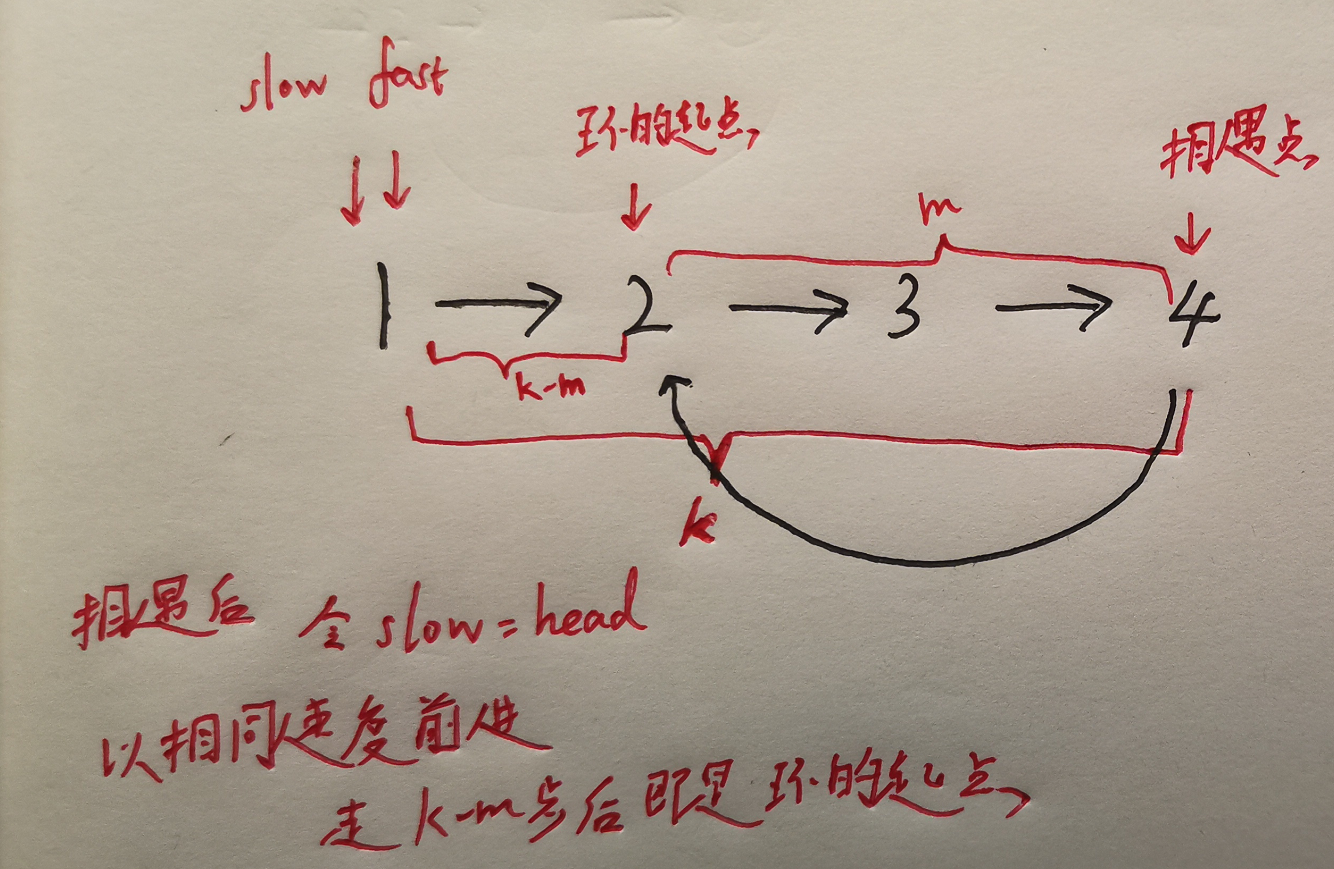 slow fast
环的起点
相遇点
m
1 → 2 → 3 → 4
k-m
k
相遇后 令 slow = head
以相同速度前进
走 k-m步后即是环的起点